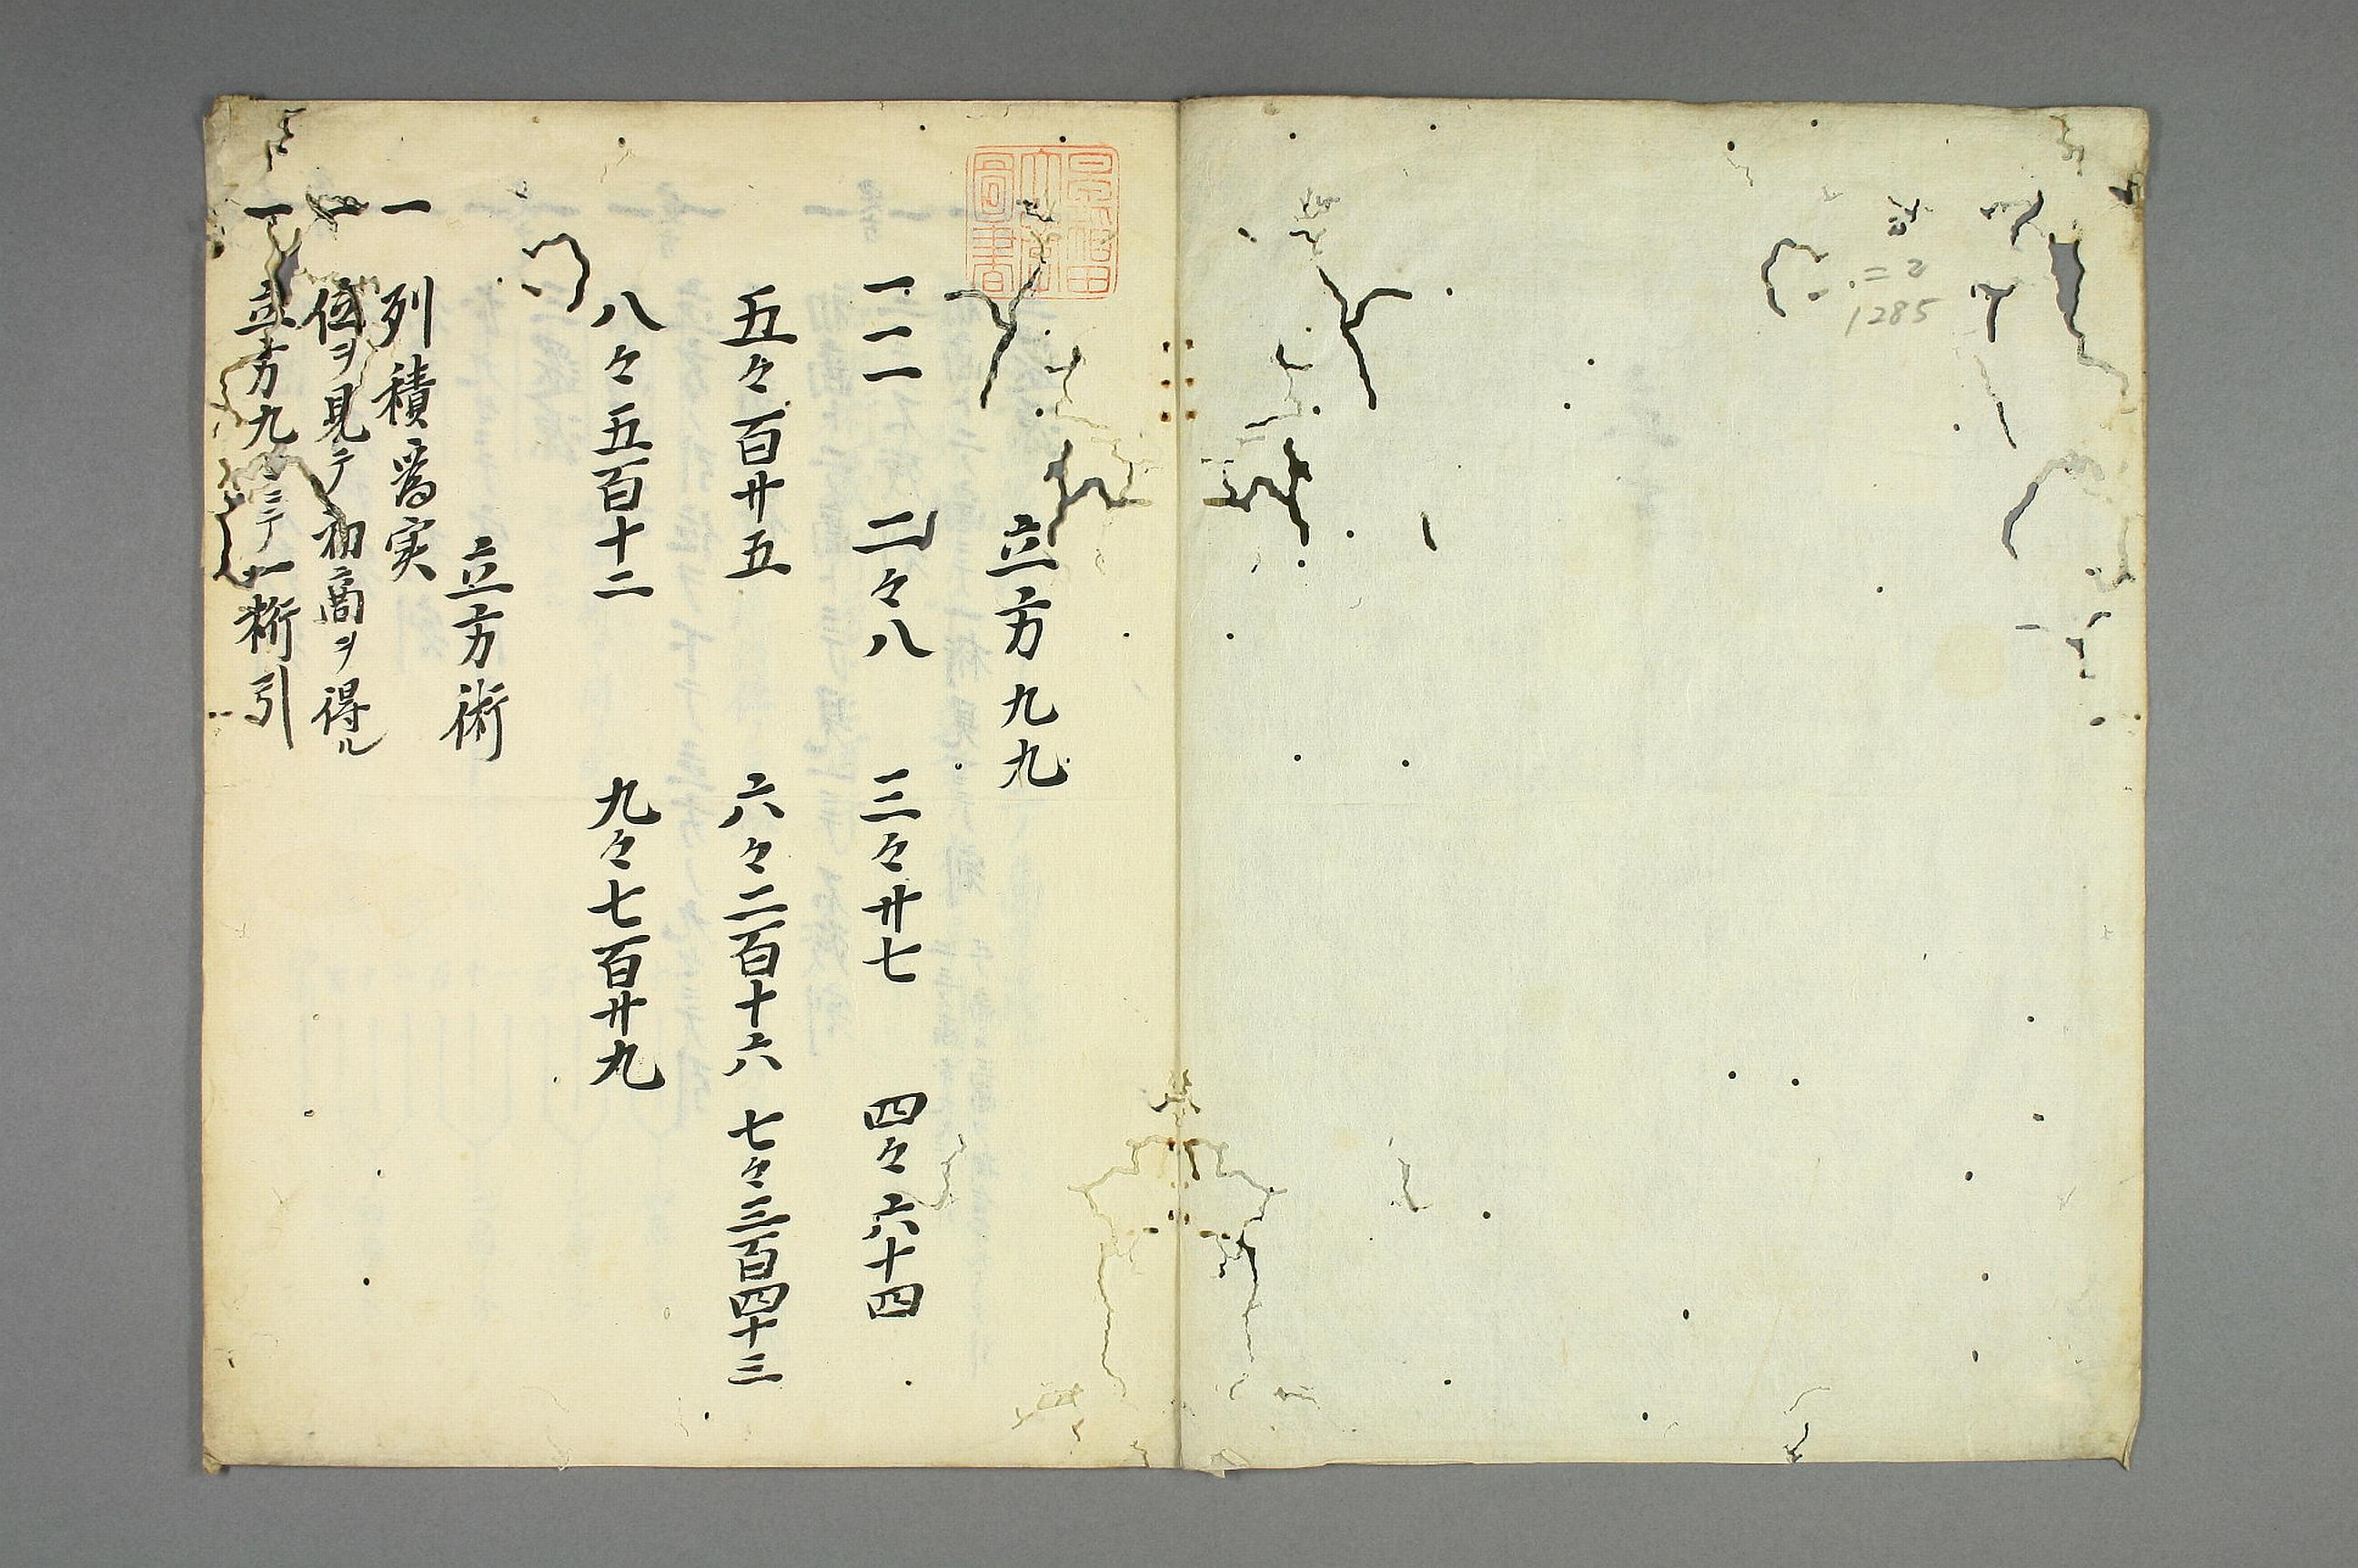 1285
立方九九
一一一 二々八 三々廿七 四々六十四
五々百廿五 六々二百十六 七々三百四十三
八々五百十二 九々七百廿九
立方術
一 列積為実
一 位ヲ見テ初商ヲ得ル
一 立方九 ニテ一桁引